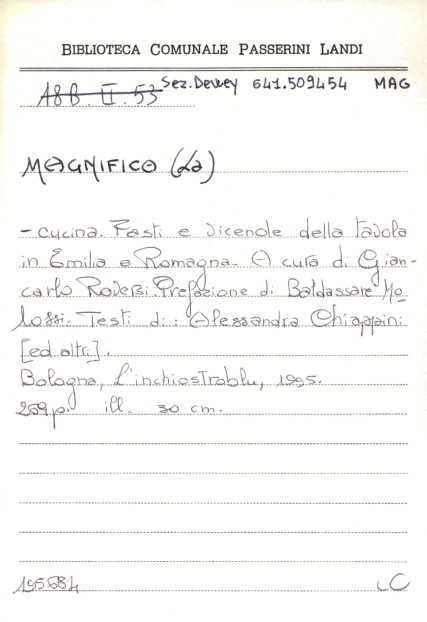 BIBLIOTECA COMUNALE PASSERINI LANDI
A8B. II. 53 Sez. Dewey 641.509454 MAG
MAGNIFICO (La)
- cucina. Fasti e vicende della tavola
in Emilia e Romagna. A cura di Gian-
carlo Roversi. Prefazione di Baldassare Mo-
lossi. Testi di: Alessandra Chiappini
[ed altri].
Bologna, L'inchiostroblu, 1995.
269p. ill. 30 cm.
195684 C